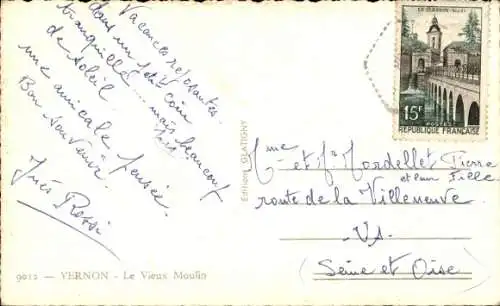 Vacances reposantes
dans un petit coin
tranquille... mais beaucoup
de soleil.
une amicale pensée
Bon souvenir.
Rossi
9012 — VERNON - Le Vieux Moulin
Editions GLATIGNY
LE QUESNOY (Nord)
15F
POSTES
REPUBLIQUE FRANÇAISE
Mme et Mordellet Pierre
et leur Fille
route de la Villeneuve
(Seine et Oise)